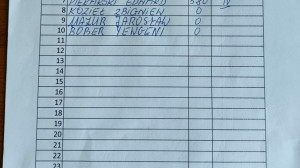 7 PIEKARSKI EDWARD 580 IV
8 KOZIEŁ ZBIGNIEW 0
9 MAZUR JAROSŁAW 0
10 BOBER YEWGENI 0
11
12
13
14
15
16
17
18
19
20
21
22
23